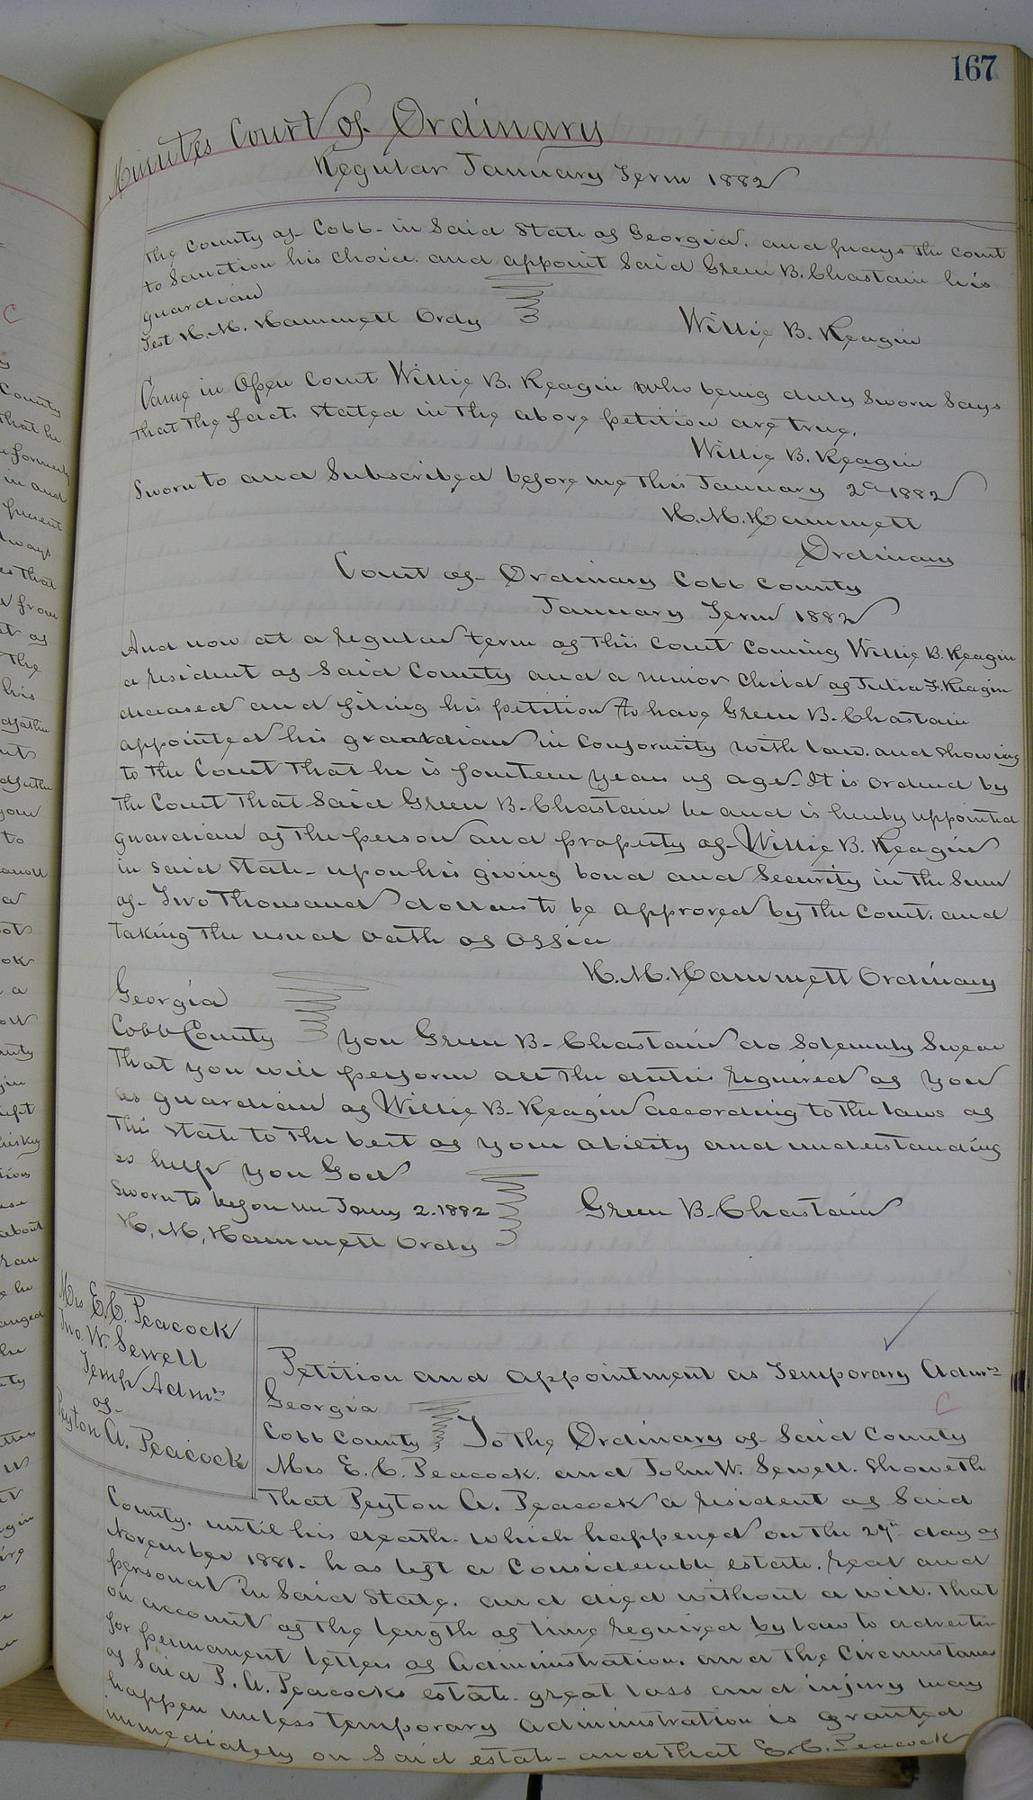 167
Minutes Court of Ordinary
Regular January Term 1882
The County of Cobb in Said State of Georgia. and prays the Court
to Sanction his choice. and appoint Said Green B. Chastain his
guardian
Test H. M. Hammett Ordy
Willie B. Reagin
Came in Open Court Willie B. Reagin who being duly Sworn Says
that the facts Stated in the above petition are true.
Willie B. Reagin
Sworn to and Subscribed before me this January 2d 1882
H. M. Hammett
Ordinary
Court of Ordinary Cobb County
January Term 1882
And now at a regular term of this Court Coming Willie B. Reagin
a resident of Said County and a minor child of Julia F. Reagin
deceased and filing his petition to have Green B. Chastain
appointed his guardian in conformity with law. and showing
to the Court that he is fourteen years of age. It is ordered by
the Court that Said Green B. Chastain be and is hereby appointed
guardian of the person and property of Willie B. Reagin
in said State upon his giving bond and Security in the Sum
of Two thousand dollars to be approved by the Court. and
taking the usual oath of office
H. M. Hammett Ordinary
Georgia
Cobb County You Green B. Chastain do Solemnly Swear
that you will perform all the duties required of you
as guardian of Willie B. Reagin according to the laws of
this State to the best of your ability and understanding
so help you God
Sworn to before me Jany 2. 1882
Green B. Chastain
H. M. Hammett Ordy
Mrs E. C. Peacock
Jno. W. Sewell
Temp Admrs
of
Peyton A. Peacock
Petition and appointment as Temporary Admrs
Georgia
C
Cobb County To the Ordinary of Said County
Mrs E. C. Peacock. and John W. Sewell. Showeth
that Peyton A. Peacock a resident of Said
County. until his death. which happened on the day of
November 1881. has left a Considerable estate. real and
personal in Said State. and died without a will. that
on account of the length of time required by law to advertise
for permanent letters of administration. and the Circumstances
of Said P. A. Peacocks estate. great loss and injury may
happen unless temporary administration is granted
immediately on Said estate and that E. C. Peacock